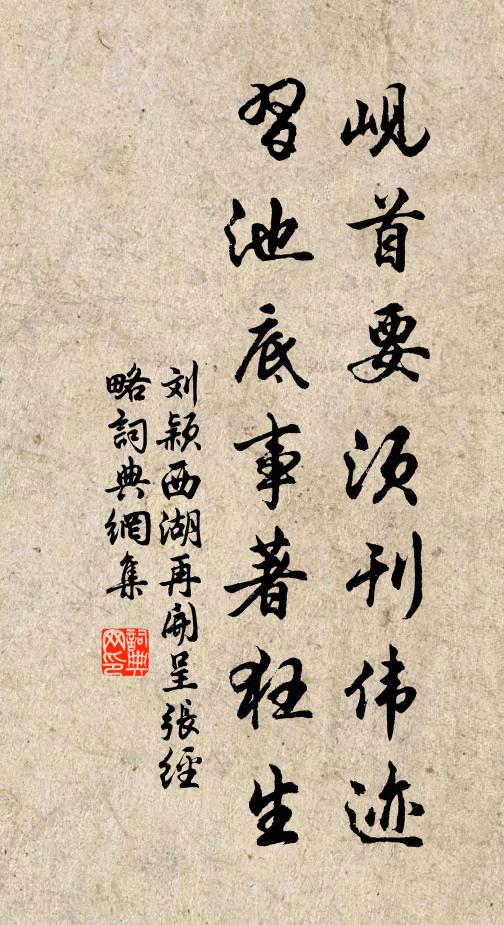 岘首要须刊伟迹
习池底事著狂生
刘颖西湖再開呈張經
略詞典網集
詞典网印